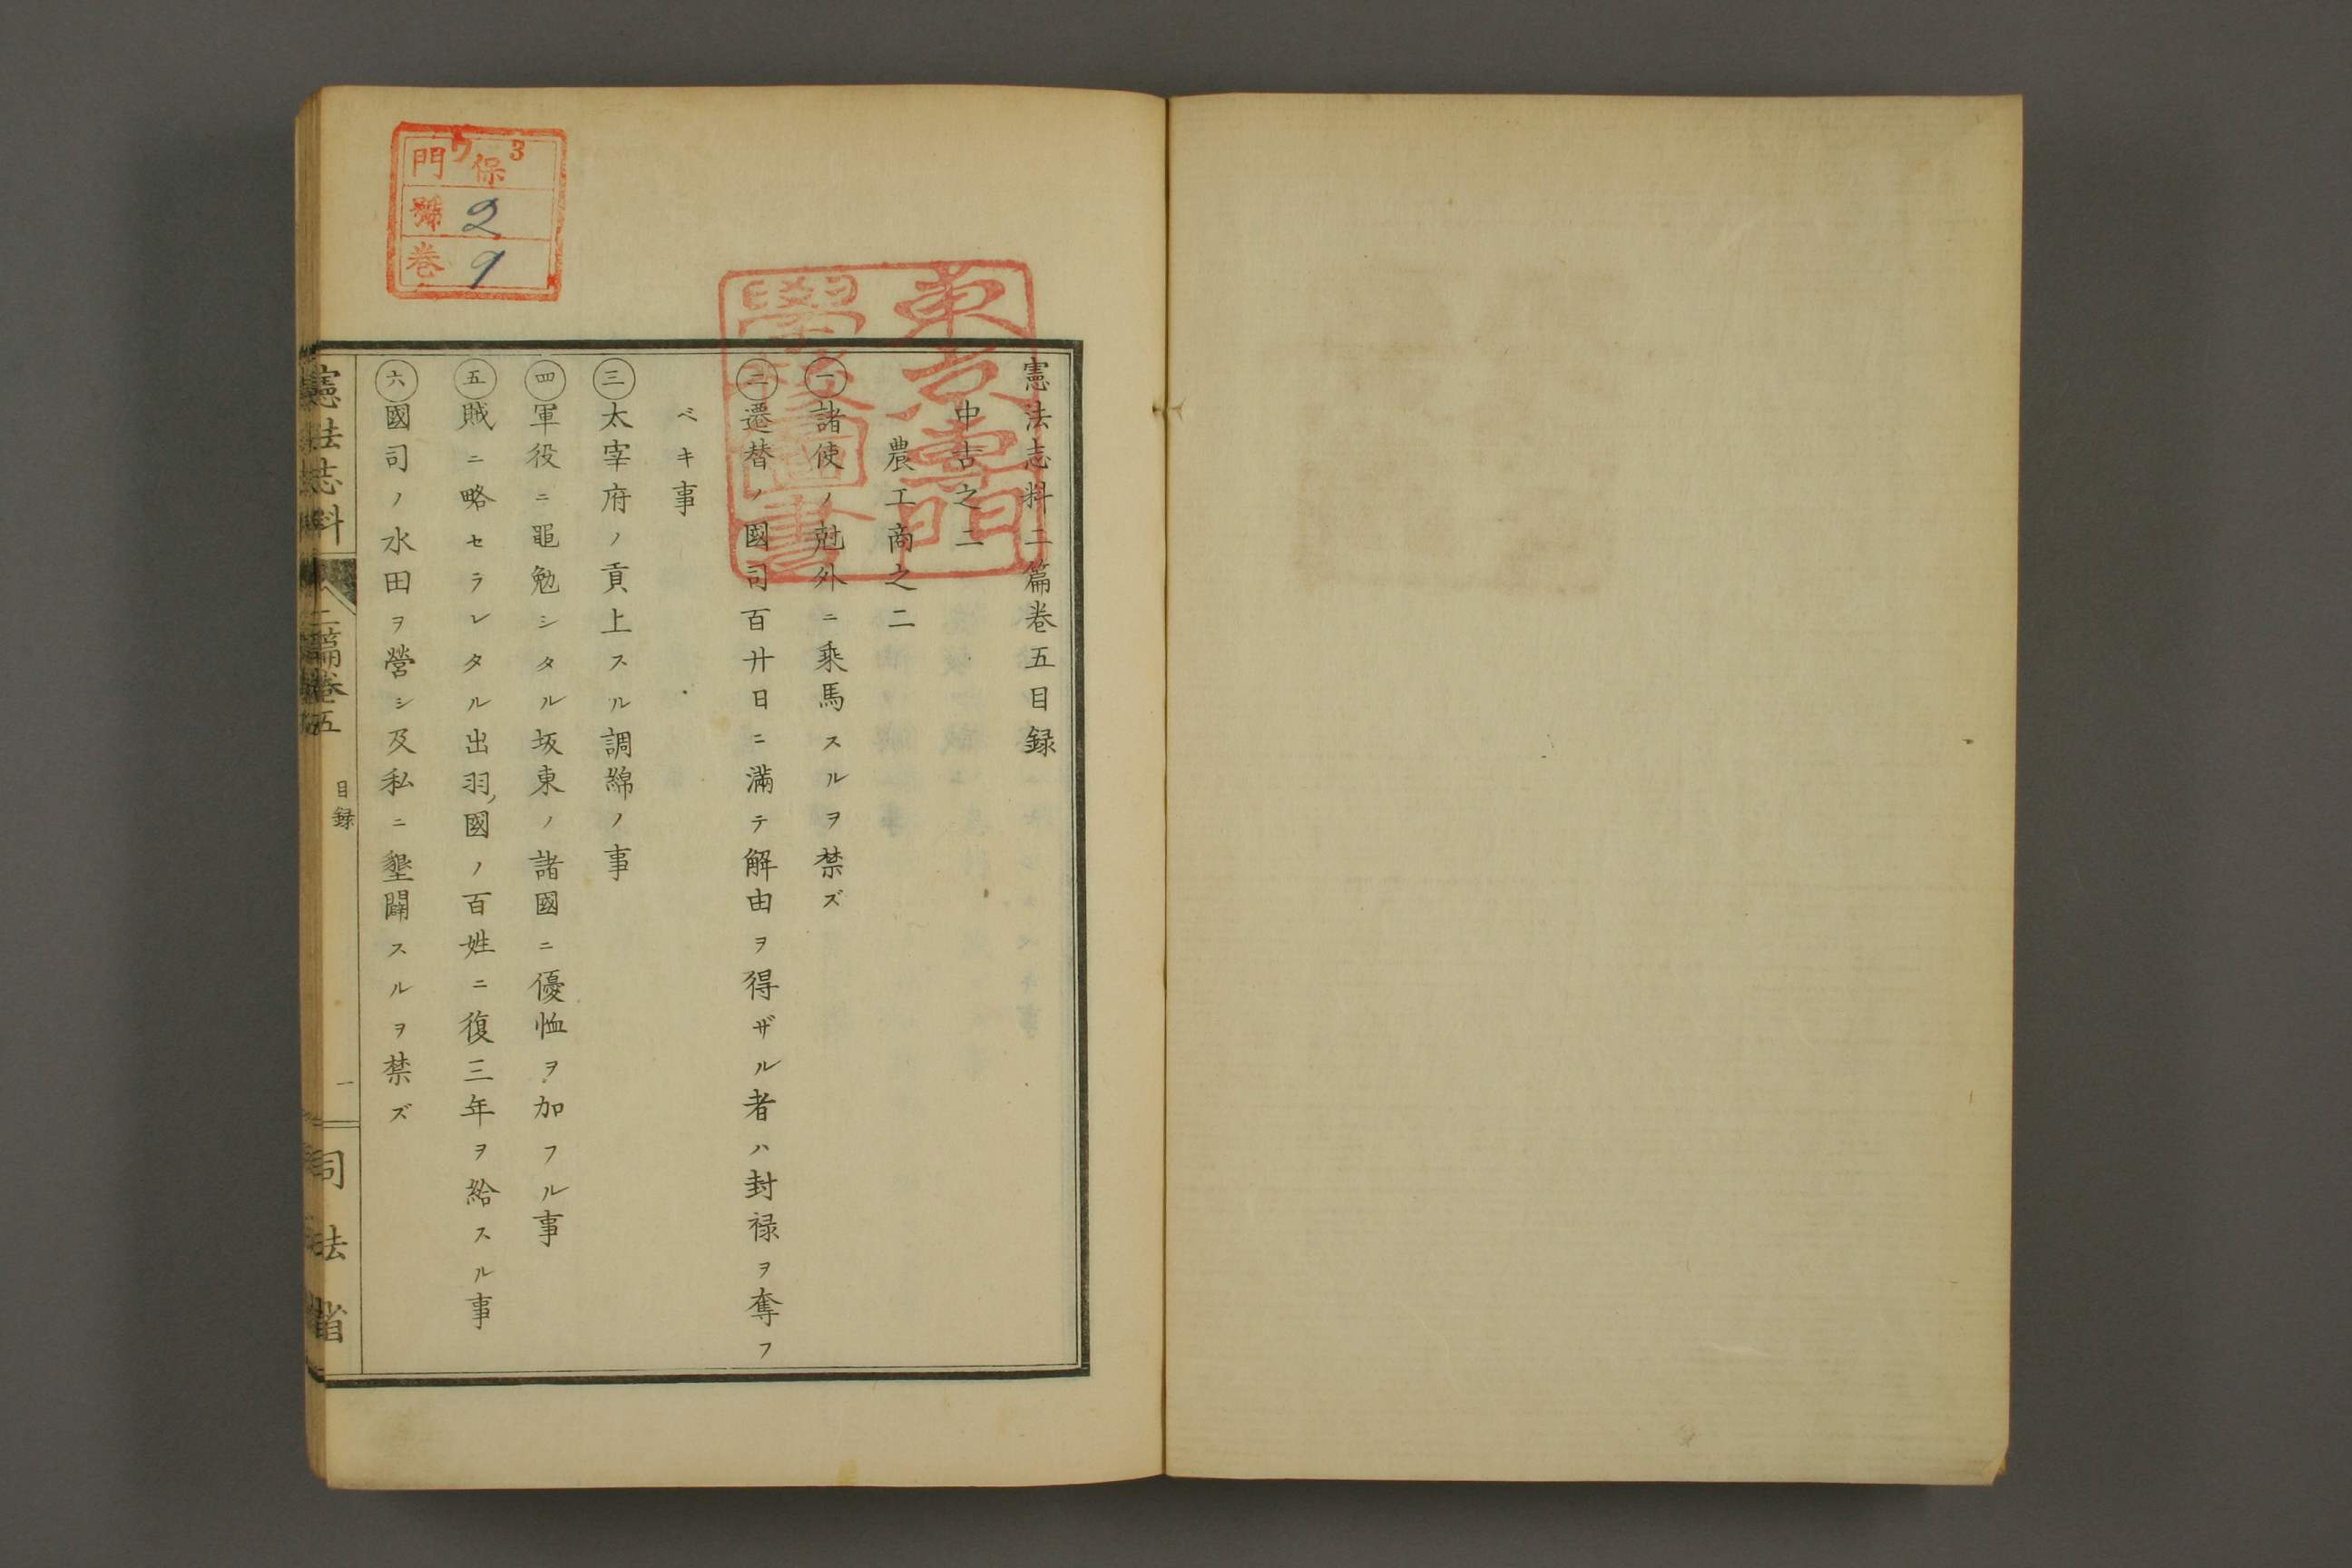 憲法志料二篇卷五目録
中古之二
農工商之二
㊀諸使ノ剋外ニ乘馬スルヲ禁ズ
㊁遷替ノ國司百廿日ニ滿テ解由ヲ得ザル者ハ封禄ヲ奪フ
ベキ事
㊂太宰府ノ貢上スル調綿ノ事
㊃軍役ニ黽勉シタル坂東ノ諸國ニ優恤ヲ加フル事
㊄賊ニ略セラレタル出羽國ノ百姓ニ復三年ヲ給スル事
㊅國司ノ水田ヲ營シ及私ニ墾闢スルヲ禁ズ
憲法志料 二篇卷五 目録 一 司法省
東京專門
學校圖書
門 ワ保3
號 2
卷 9